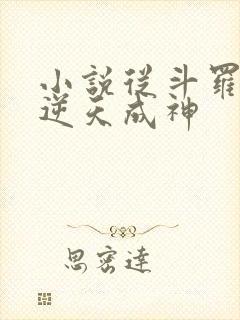 小說從斗羅
逆天成神
思密達